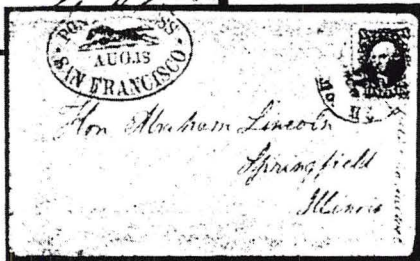 PON SS
AUG. 18
SAN FRANCISCO
Hon Abraham Lincoln
Springfield
Illinois